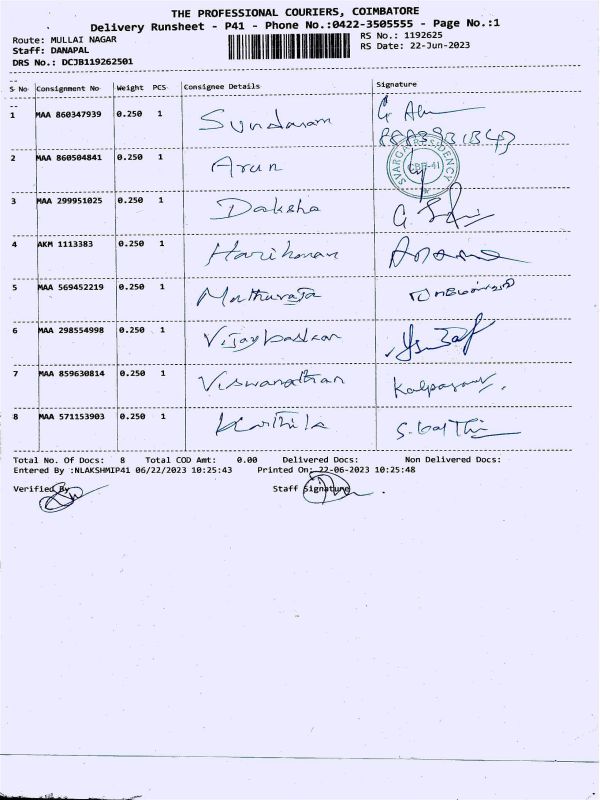 THE PROFESSIONAL COURIERS, COIMBATORE
Delivery Runsheet - P41 - Phone No.:0422-3505555 - Page No.:1
Route: MULLAI NAGAR RS No.: 1192625
Staff: DANAPAL RS Date: 22-Jun-2023
DRS No.: DCJB119262501
S No Consignment No Weight PCS Consignee Details Signature
1 MAA 860347939 0.250 1 Sundaram
2 MAA 860504841 0.250 1 Arun
SVARGA RESIDENCY
CBE-41
3 MAA 299951025 0.250 1 Daksha
4 AKM 1113383 0.250 1 Hariharan
5 MAA 569452219 0.250 1 Muthuraja
6 MAA 298554998 0.250 1 Vijaybaskar
7 MAA 859630814 0.250 1 Viswanathan
8 MAA 571153903 0.250 1 Karthika
Total No. Of Docs: 8 Total COD Amt: 0.00 Delivered Docs: Non Delivered Docs:
Entered By :NLAKSHMIP41 06/22/2023 10:25:43 Printed On: 22-06-2023 10:25:48
Verified By Staff Signature